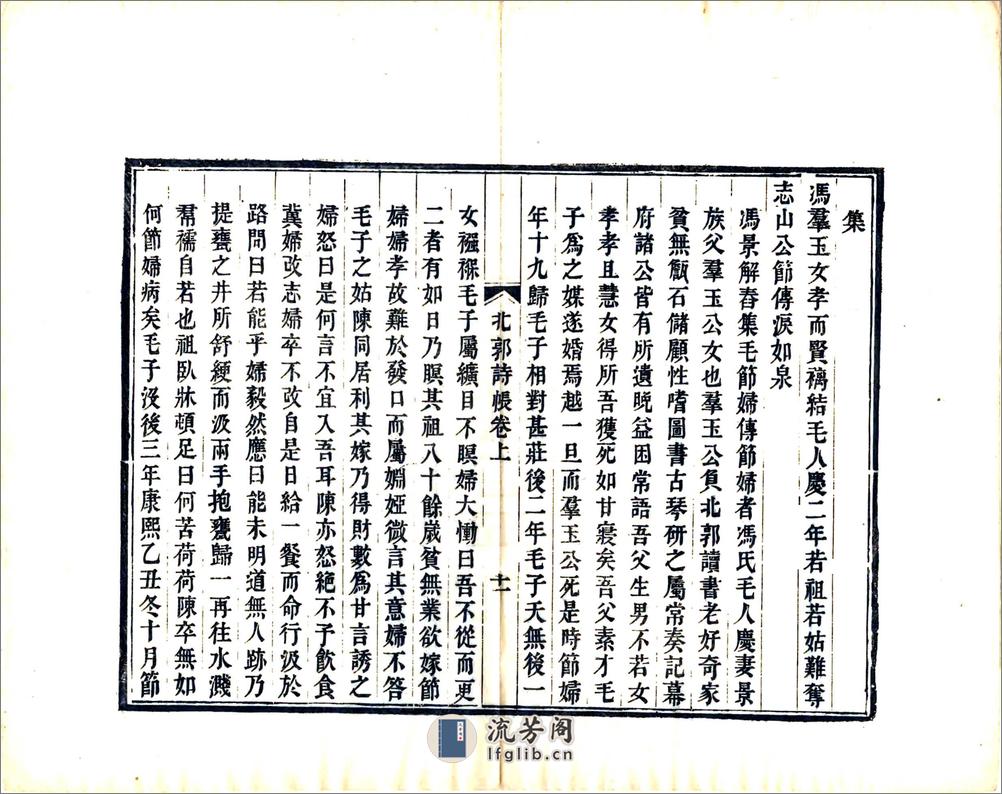 集
馮羣玉女孝而賢褵結毛人慶二年若祖若姑難奪
志山公節傳淚如泉
馮景解舂集毛節婦傳節婦者馮氏毛人慶妻景
族父羣玉公女也羣玉公負北郭讀書老好奇家
貧無甔石儲顧性嗜圖書古琴研之屬常奏記幕
府諸公皆有所遺晚益困常語吾父生男不若女
孝孝且慧女得所吾獲死如甘寢矣吾父素才毛
子爲之媒遂婚焉越一旦而羣玉公死是時節婦
年十九歸毛子相對甚莊後二年毛子夭無後一
北郭詩帳卷上
十一
女襁褓毛子屬纊目不瞑婦大慟曰吾不從而更
二者有如日乃瞑其祖八十餘歲貧無業欲嫁節
婦婦孝故難於發口而屬婣婭微言其意婦不答
毛子之姑陳同居利其嫁乃得財數爲甘言誘之
婦怒曰是何言不宜入吾耳陳亦怒絶不予飲食
冀婦改志婦卒不改自是日給一餐而命行汲於
路問曰若能乎婦毅然應曰能未明道無人跡乃
提甕之井所舒綆而汲兩手抱甕歸一再往水濺
帬襦自若也祖臥牀頓足曰何苦荷荷陳卒無如
何節婦病矣毛子沒後三年康熙乙丑冬十月節
流芳阁
lfglib.cn